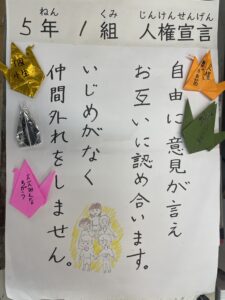 5年1組 人権宣言
ねん くみ じんけんせんげん
自由に意見が言え
お互いに認め合います。
いじめがなく
仲間外れをしません。